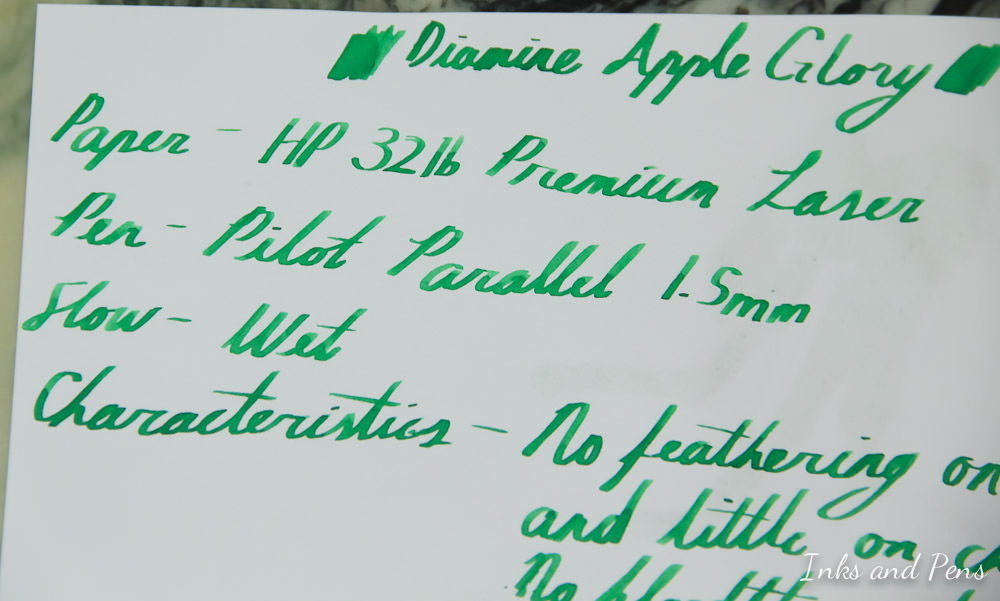 Diamine Apple Glory
Paper - HP 32lb Premium Laser
Pen - Pilot Parallel 1.5mm
Flow - Wet
Characteristics - No feathering on
and little on
No
Inks and Pens